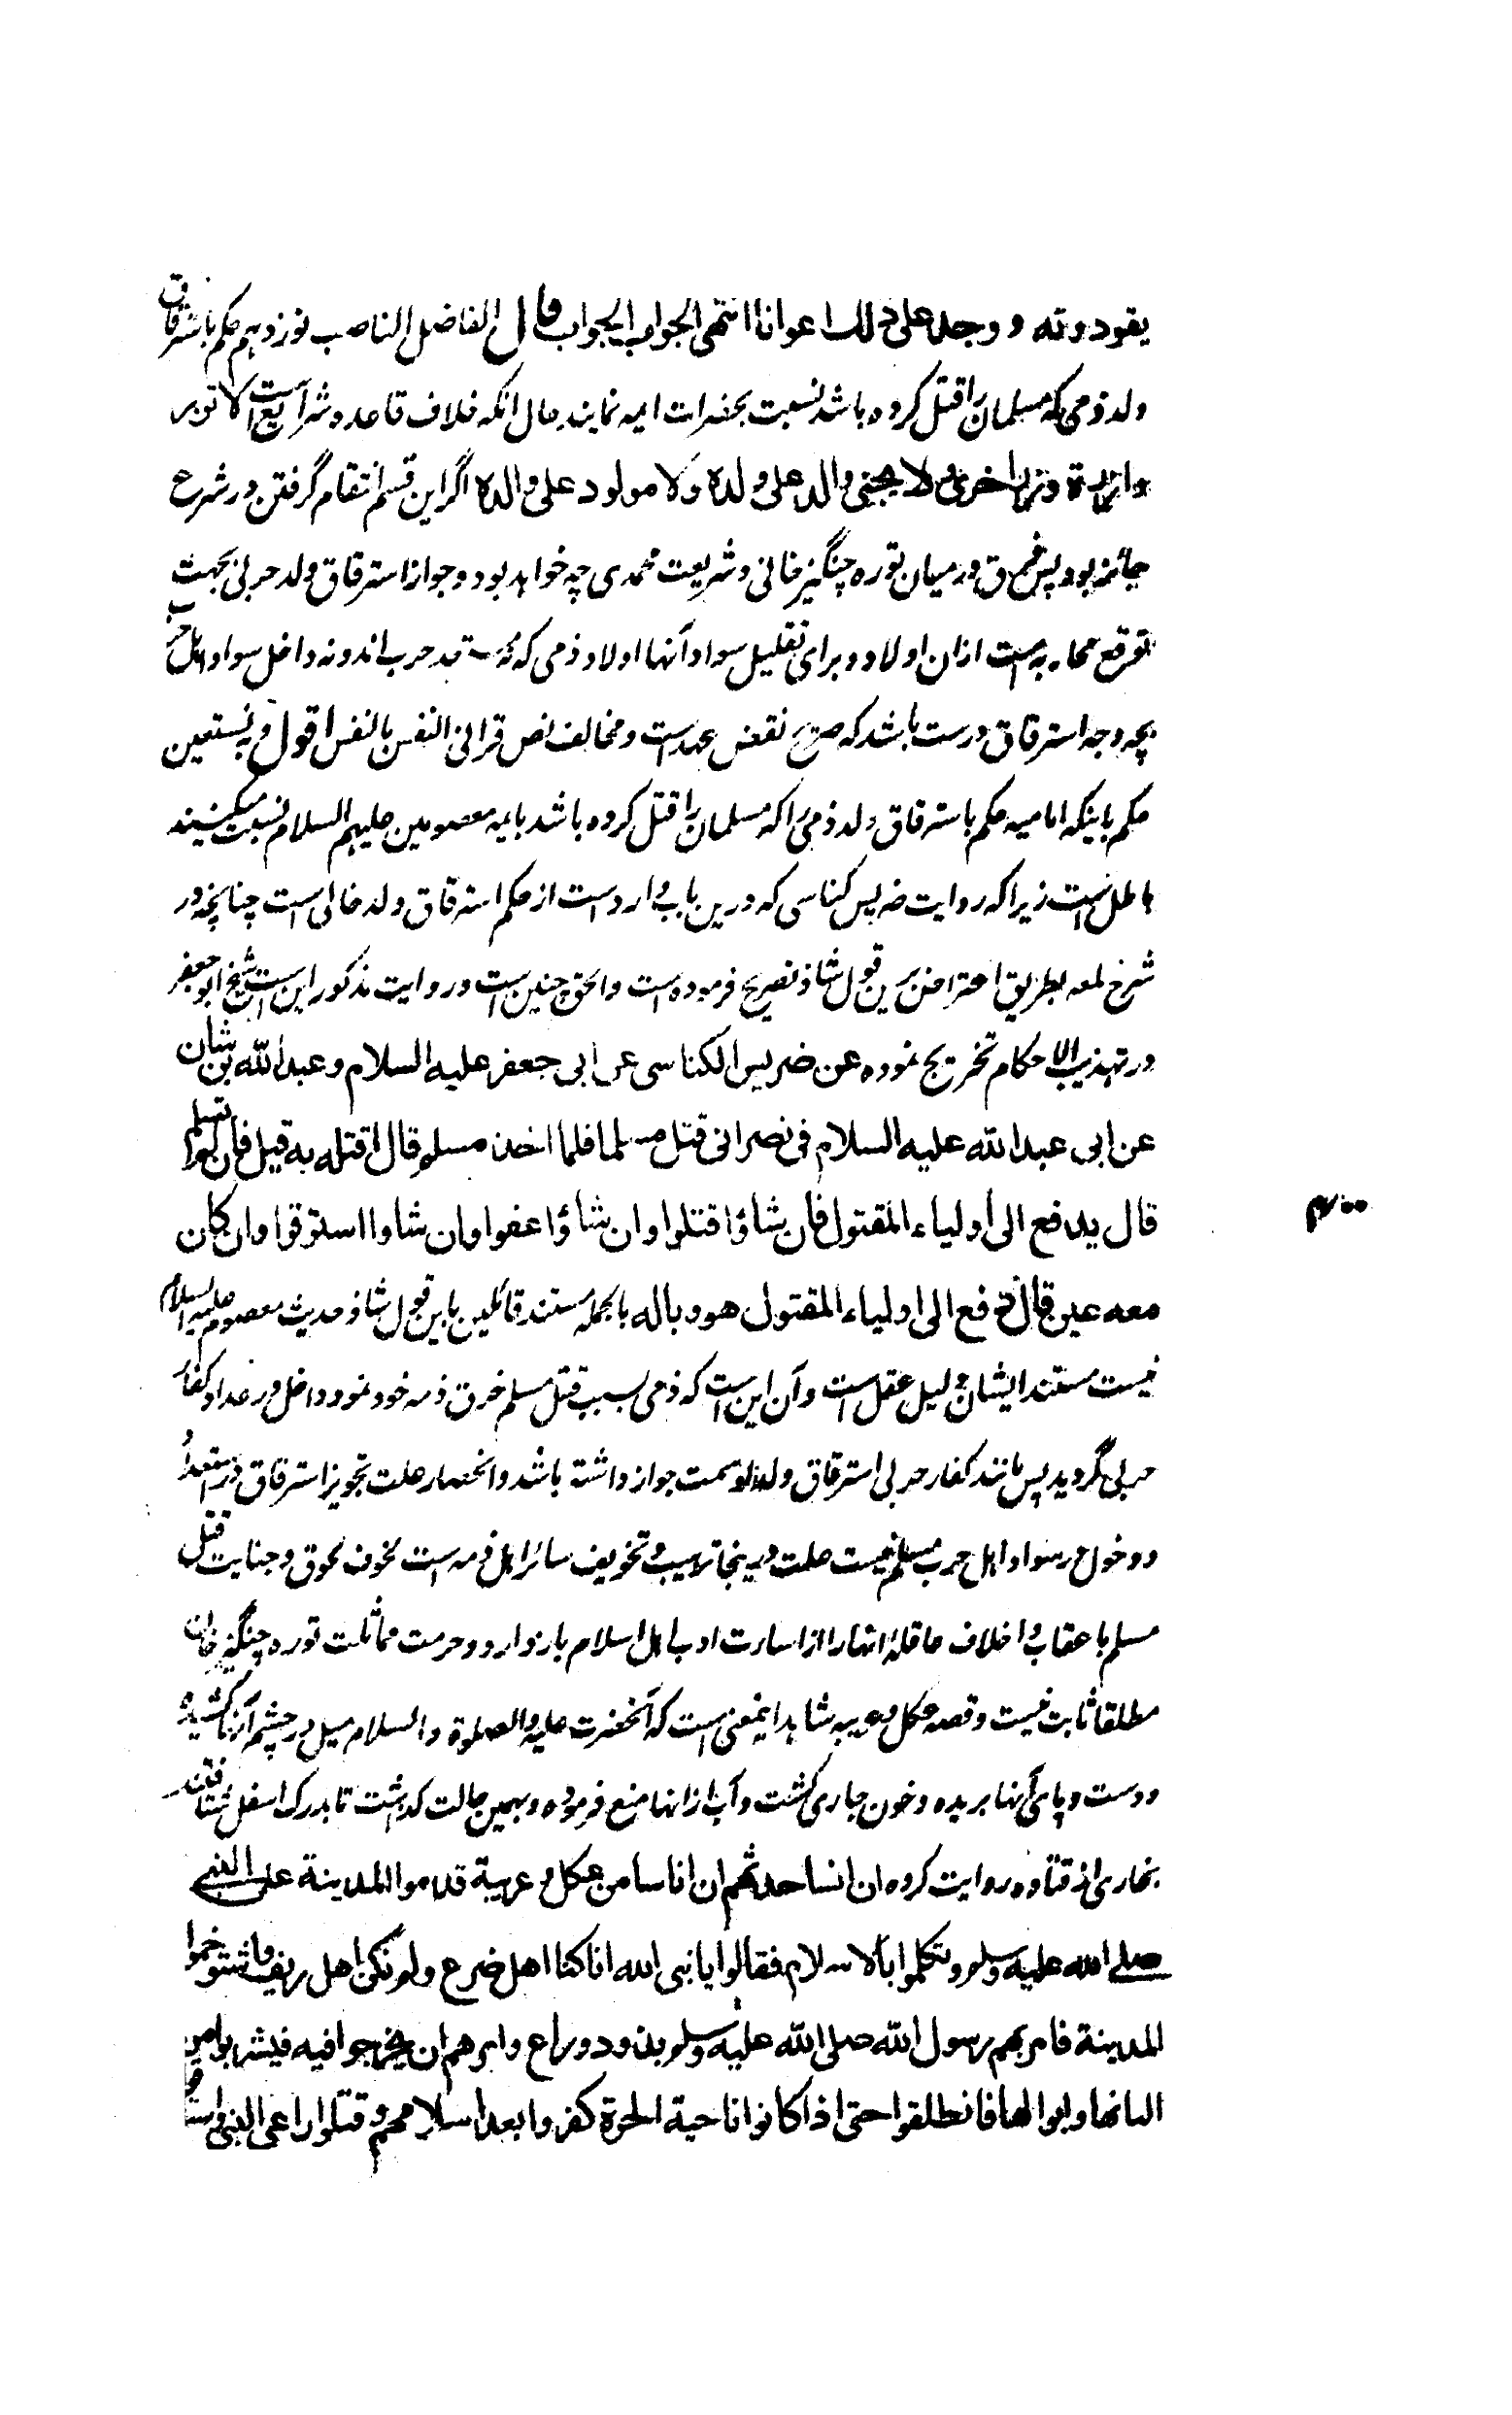 يقودونه ووجد على ذلك اعوانا انتهى الجواب الجواب قال الفاضل الناصب نوزدهم حكم باسترقاق
ولد ذمى كه مسلمان را قتل كرده باشد نسبت بحضرات ايمه نمايند حال انكه خلاف قاعده شرايع است الا تزر
وازرة وزر اخرى ولا يجنى والد على ولده ولا مولود على والده اگر اين قسم انتقام گرفتن در شرع
جائز بود پس فرق درميان توره چنگيز خانى و شريعت محمدى چه خواهد بود و جواز استرقاق ولد حربى بجهت
توقع محاربه است ازان اولاد و براى تقليل سواد آنها اولاد ذمى كه نه حرب اند و نه داخل سواد اهل حرب
بچه وجه استرقاق درست باشد كه صريح نقض عهد است و مخالف نص قرانى النفس بالنفس اقول وبه نستعين
حكم باينكه اماميه حكم باسترقاق ولد ذمى را كه مسلمان را قتل كرده باشد بايمه معصومين عليهم السلام نسبت ميكنند
باطل است زيرا كه روايت ضريس كناسى كه درين باب وارد است از حكم استرقاق ولد خالى است چنانچه در
شرح لمعه بطريق اعتراض برين قول شاذ تصريح فرموده است والحق چنين است و روايت مذكور اين است شيخ ابو جعفر
در تهذيب الاحكام تخريج نموده عن ضريس الكناسى عن ابى جعفر عليه السلام وعبد الله بن سنان
عن ابى عبد الله عليه السلام فى نصرانى قتل مسلما فلما اخذ مسلم قال اقتله به قيل فان لم يقتلوا
قال يدفع الى اولياء المقتول فان شاؤا قتلوا وان شاؤا عفوا وان شاوا استرقوا وان كان
معه عين قال دفع الى اولياء المقتول هو و باله بالجمله مستند قائلين باين قول شاذ حديث معصوم عليه السلام
نيست مستند ايشان دليل عقل است و آن اين است كه ذمى بسبب قتل مسلم خرق ذمه خود نمود و داخل در عداد كفار
حربى گرديد پس مانند كفار حربى استرقاق ولد او سمت جواز داشته باشد و انحصار علت تجويز استرقاق در استعداد
و دخول در سواد اهل حرب مسلم نيست علت درينجا ترهيب و تخويف سائر اهل ذمه است بخوف لحوق جنايت قتل
مسلم باعقاب و اخلاف عاقله انها را از اسارت ادب اهل اسلام باز دارد و حرمت مماثلت توره چنگيز خان
مطلقا ثابت نيست و قصه عكل و عرينه شاهد اينمعنى است كه آنحضرت عليه الصلوة والسلام ميل در چشم آنها كشيده
و دست و پاى آنها بريده و خون جارى گشت و آب از انها منع فرموده و بهمين حالت گذاشت تا بدرك اسفل شتافتند
بخارى از قتاده روايت كرده ان انسا حدثهم ان اناسا من عكل وعرينة قدموا المدينة على النبى
صلى الله عليه وسلم وتكلموا بالاسلام فقالوا يا نبى الله انا كنا اهل ضرع ولم نكن اهل ريف واستوخموا
المدينة فامر لهم رسول الله صلى الله عليه وسلم بذود وراع وامرهم ان يخرجوا فيه فيشربوا من
البانها وابوالها فانطلقوا حتى اذا كانوا ناحية الحرة كفروا بعد اسلامهم وقتلوا راعى النبى واستاقوا